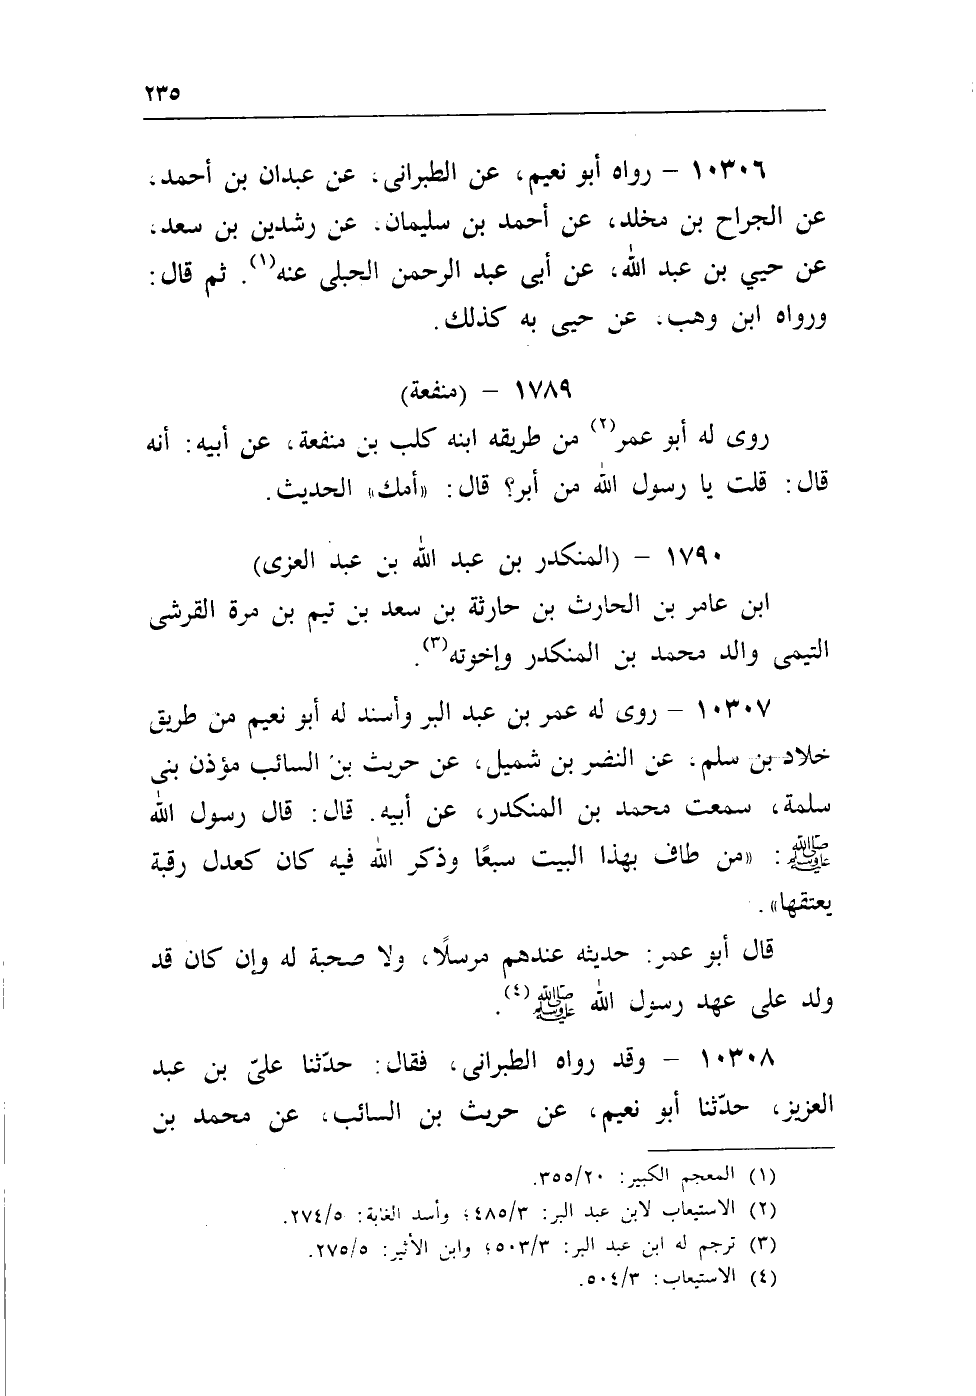 ٢٣٥
١٠٣٠٦ – رواه أبو نعيم، عن الطبرانى، عن عبدان بن أحمد،
عن الجراح بن مخلد، عن أحمد بن سليمان، عن رشدين بن سعد،
عن حيي بن عبد الله، عن أبى عبد الرحمن الحبلى عنه(١). ثم قال:
ورواه ابن وهب، عن حيى به كذلك.
١٧٨٩ – (منفعة)
روى له أبو عمر(٢) من طريقه ابنه كلب بن منفعة، عن أبيه: أنه
قال: قلت يا رسول الله من أبر؟ قال: «أمك» الحديث.
١٧٩٠ – (المنكدر بن عبد الله بن عبد العزى)
ابن عامر بن الحارث بن حارثة بن سعد بن تيم بن مرة القرشى
التيمى والد محمد بن المنكدر وإخوته(٣).
١٠٣٠٧ – روى له عمر بن عبد البر وأسند له أبو نعيم من طريق
خلاد بن سلم، عن النضر بن شميل، عن حريث بن السائب مؤذن بنى
سلمة، سمعت محمد بن المنكدر، عن أبيه. قال: قال رسول الله
ﷺ: «من طاف بهذا البيت سبعًا وذكر الله فيه كان كعدل رقبة
يعتقها».
قال أبو عمر: حديثه عندهم مرسلًا، ولا صحبة له وإن كان قد
ولد على عهد رسول الله ﷺ(٤).
١٠٣٠٨ – وقد رواه الطبرانى، فقال: حدّثنا علىّ بن عبد
العزيز، حدّثنا أبو نعيم، عن حريث بن السائب، عن محمد بن
(١) المعجم الكبير: ٣٥٥/٢٠.
(٢) الاستيعاب لابن عبد البر: ٤٨٥/٣؛ وأسد الغابة: ٢٧٤/٥.
(٣) ترجم له ابن عبد البر: ٥٠٣/٣؛ وابن الأثير: ٢٧٥/٥.
(٤) الاستيعاب: ٥٠٤/٣.